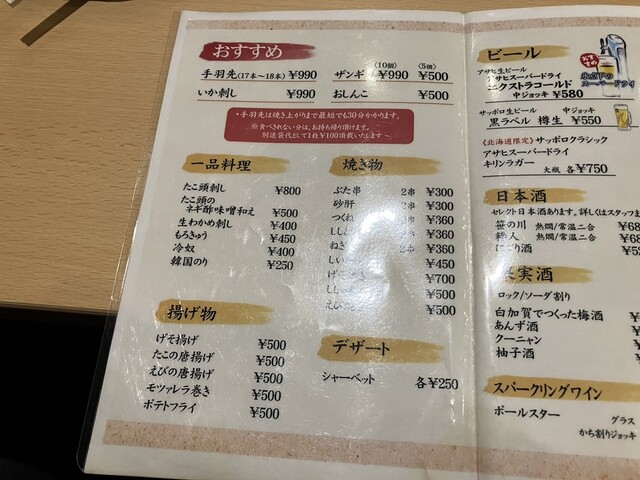 おすすめ
手羽先(17本〜18本) ¥990
ザンギ 〈10個〉 ¥990 〈5個〉 ¥500
いか刺し ¥990
おしんこ ¥500
・手羽先は焼き上がりまで最短でも30分かかります。
※食べきれない分は、お持ち帰り頂けます。
別途袋代として1枚¥100頂戴いたします
一品料理
たこ頭刺し ¥800
たこ頭の
ネギ酢味噌和え ¥500
生わかめ刺し ¥400
もろきゅう ¥450
冷奴 ¥400
韓国のり ¥250
揚げ物
げそ揚げ ¥500
たこの唐揚げ ¥500
えびの唐揚げ ¥500
モツァレラ巻き ¥500
ポテトフライ ¥500
焼き物
ぶた串 2串 ¥300
砂肝 2串 ¥300
つくね 2串 ¥360
しし 2串 ¥360
ねぎ 2串 ¥360
しい ¥450
げ ¥700
しし ¥500
えび ¥500
デザート
シャーベット 各¥250
ビール
アサヒ生ビール
アサヒスーパードライ
エクストラコールド
中ジョッキ ¥580
おすすめ
氷点下の
スーパードライ
サッポロ生ビール 中ジョッキ
黒ラベル 樽生 ¥550
《北海道限定》サッポロクラシック
アサヒスーパードライ
キリンラガー 大瓶 各¥750
日本酒
セレクト日本酒あります。詳しくはスタッフま
笹の川 熱燗/常温二合 ¥68
熱燗/常温二合 ¥68
にごり酒 ¥5
果実酒
ロック/ソーダ割り
白加賀でつくった梅酒
あんず酒
クーニャン
柚子酒
スパークリングワイン
ポールスター グラス
かち割りジョッキ